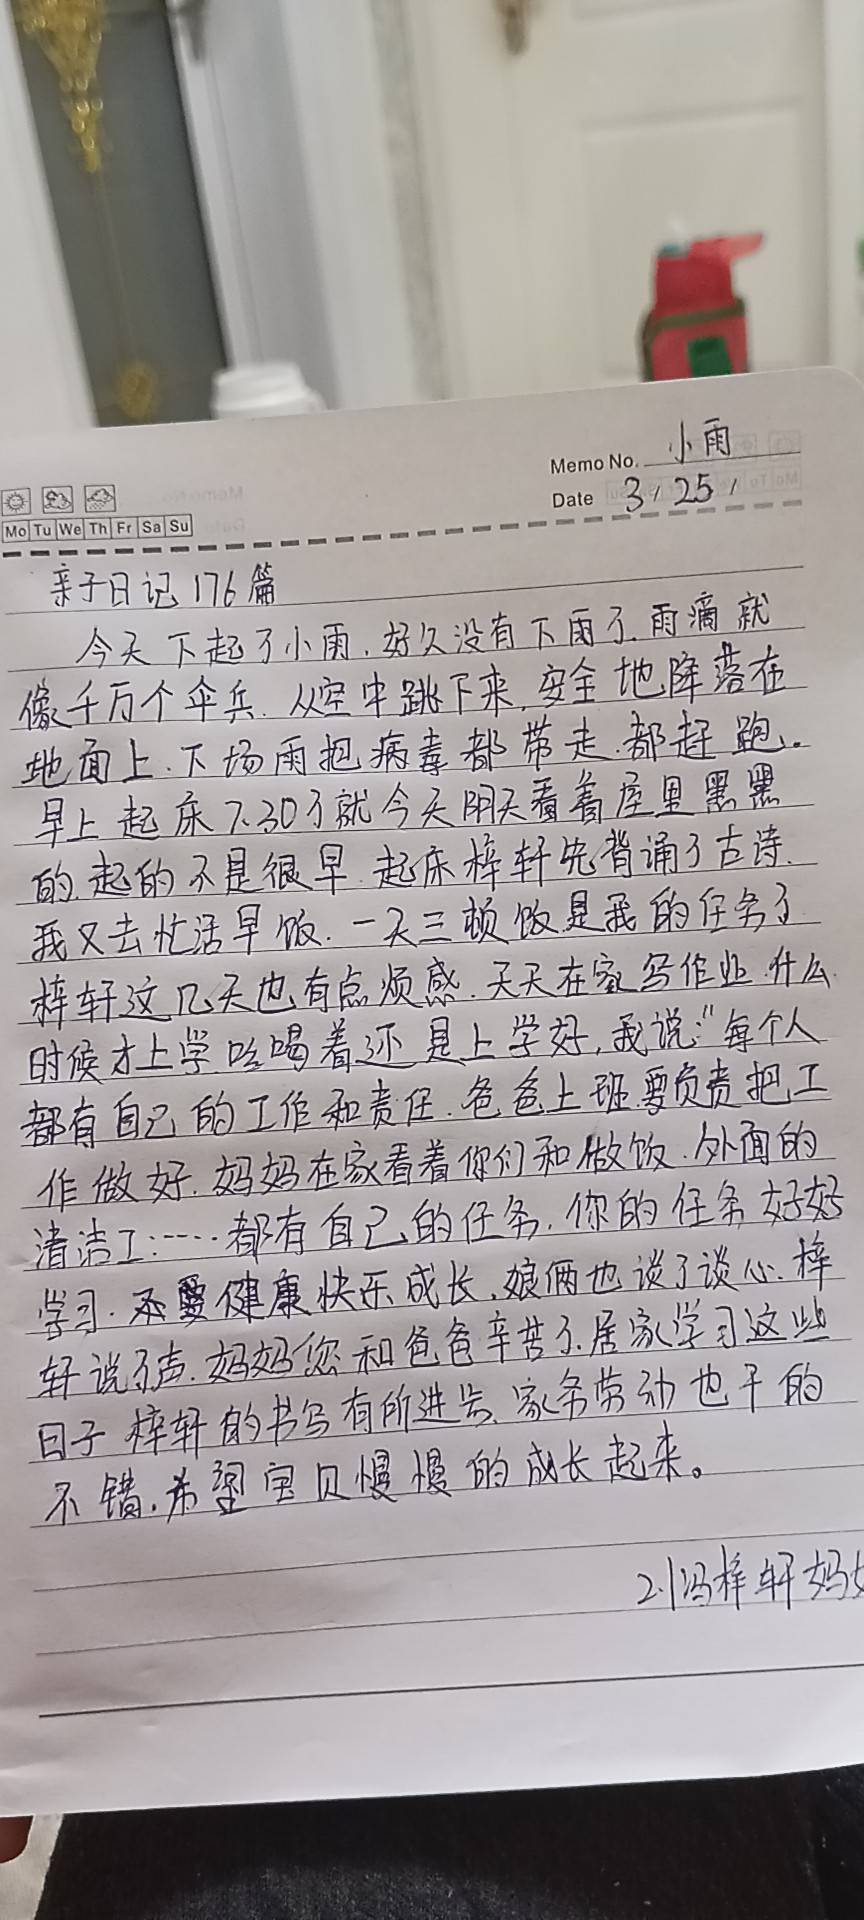 Memo No. 小雨
Date 3 / 25 /
Mo Tu We Th Fr Sa Su
亲子日记176篇
今天下起了小雨.好久没有下雨了.雨滴就
像千万个伞兵.从空中跳下来,安全地降落在
地面上.下场雨把病毒都带走.都赶跑。
早上起床7.30了就今天阴天看着屋里黑黑
的.起的不是很早.起床梓轩先背诵了古诗.
我又去忙活早饭.一天三顿饭是我的任务了
梓轩这几天也有点烦感.天天在家写作业.什么
时候才上学吆喝着还是上学好,我说:"每个人
都有自己的工作和责任.爸爸上班要负责把工
作做好.妈妈在家看着你们和做饭.外面的
清洁工:····都有自己的任务.你的任务好好
学习.还要健康快乐成长.娘俩也谈了谈心.梓
轩说了声.妈妈您和爸爸辛苦了.居家学习这些
日子梓轩的书写有所进步.家务劳动也干的
不错.希望宝贝慢慢的成长起来。
2.1冯梓轩妈妈